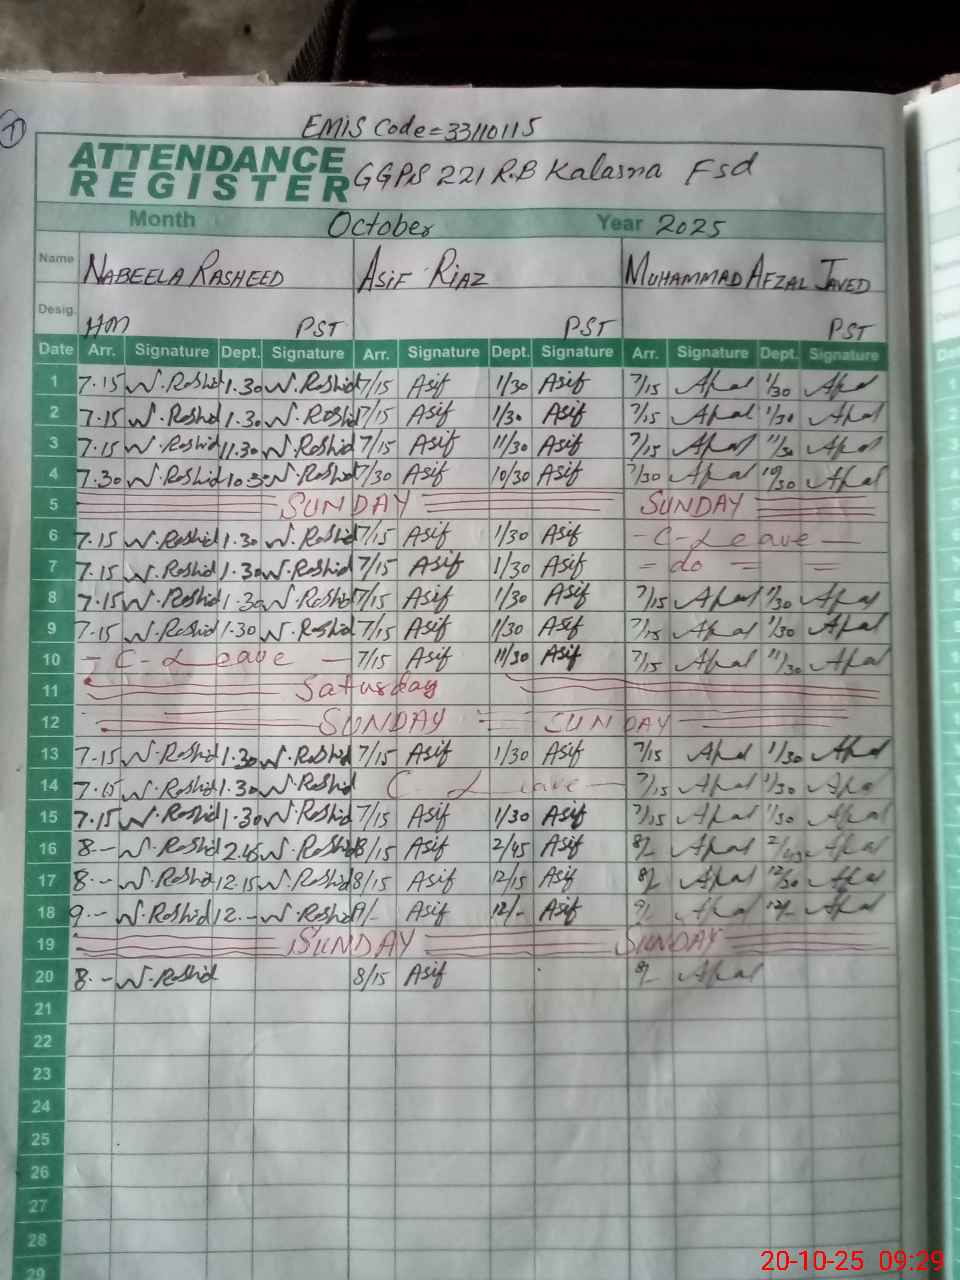 1
EMIS Code=33110115
ATTENDANCE REGISTER GGPS 221 R.B Kalasna Fsd
Month October Year 2025
Name NABEELA RASHEED ASIF RIAZ MUHAMMAD AFZAL JAVED
Desig. HM PST PST PST
Date Arr. Signature Dept. Signature Arr. Signature Dept. Signature Arr. Signature Dept. Signature
1 7.15 N.Rashid 1.30 N.Rashid 7/15 Asif 1/30 Asif 7/15 Afzal 1/30 Afzal
2 7.15 N.Rashid 1.30 N.Rashid 7/15 Asif 1/30 Asif 7/15 Afzal 1/30 Afzal
3 7.15 N.Rashid 11.30 N.Rashid 7/15 Asif 11/30 Asif 7/15 Afzal 11/30 Afzal
4 7.30 N.Rashid 10.30 N.Rashid 7/30 Asif 10/30 Asif 7/30 Afzal 10/30 Afzal
5 SUNDAY SUNDAY
6 7.15 N.Rashid 1.30 N.Rashid 7/15 Asif 1/30 Asif - C-Leave -
7 7.15 N.Rashid 1.30 N.Rashid 7/15 Asif 1/30 Asif = do = =
8 7.15 N.Rashid 1.30 N.Rashid 7/15 Asif 1/30 Asif 7/15 Afzal 1/30 Afzal
9 7.15 N.Rashid 1.30 N.Rashid 7/15 Asif 1/30 Asif 7/15 Afzal 1/30 Afzal
10 - C-Leave - 7/15 Asif 11/30 Asif 7/15 Afzal 11/30 Afzal
11 Saturday
12 SUNDAY = SUNDAY
13 7.15 N.Rashid 1.30 N.Rashid 7/15 Asif 1/30 Asif 7/15 Afzal 1/30 Afzal
14 7.15 N.Rashid 1.30 N.Rashid C-Leave - 7/15 Afzal 1/30 Afzal
15 7.15 N.Rashid 1.30 N.Rashid 7/15 Asif 1/30 Asif 7/15 Afzal 1/30 Afzal
16 8.- N.Rashid 2.45 N.Rashid 8/15 Asif 2/45 Asif 8/- Afzal 2/45 Afzal
17 8.- N.Rashid 12.15 N.Rashid 8/15 Asif 12/15 Asif 8/- Afzal 12/30 Afzal
18 9.- N.Rashid 12.- N.Rashid 9/- Asif 12/- Asif 9/- Afzal 12/- Afzal
19 SUNDAY SUNDAY
20 8.- N.Rashid 8/15 Asif 8/- Afzal
21
22
23
24
25
26
27
28
29
20-10-25 09:29